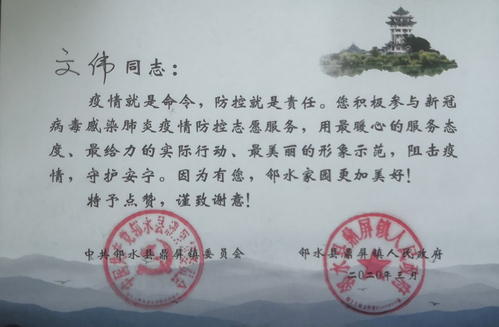 文伟同志：
疫情就是命令，防控就是责任。您积极参与新冠
病毒感染肺炎疫情防控志愿服务，用最暖心的服务态
度、最给力的实际行动、最美丽的形象示范，阻击疫
情，守护安宁。因为有您，邻水家园更加美好！
特予点赞，谨致谢意！
中共邻水县鼎屏镇委员会 邻水县鼎屏镇人民政府
二〇二〇年三月